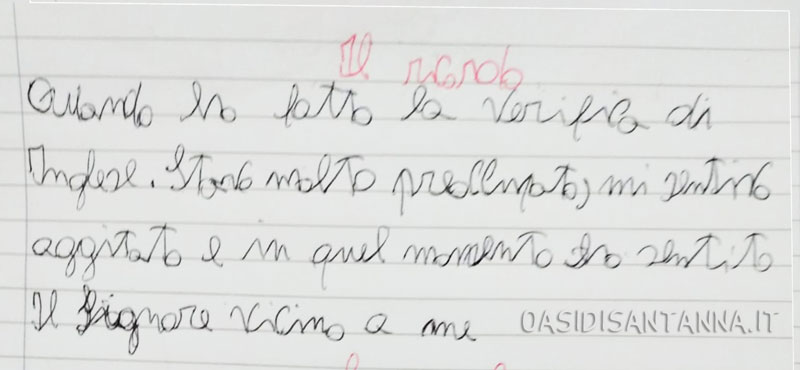 Il ricordo
Quando ho fatto la verifica di
Inglese. Stavo molto preoccupato, mi sentivo
aggitato e in quel momento ho sentito
Il Signore vicino a me
OASIDISANTANNA.IT